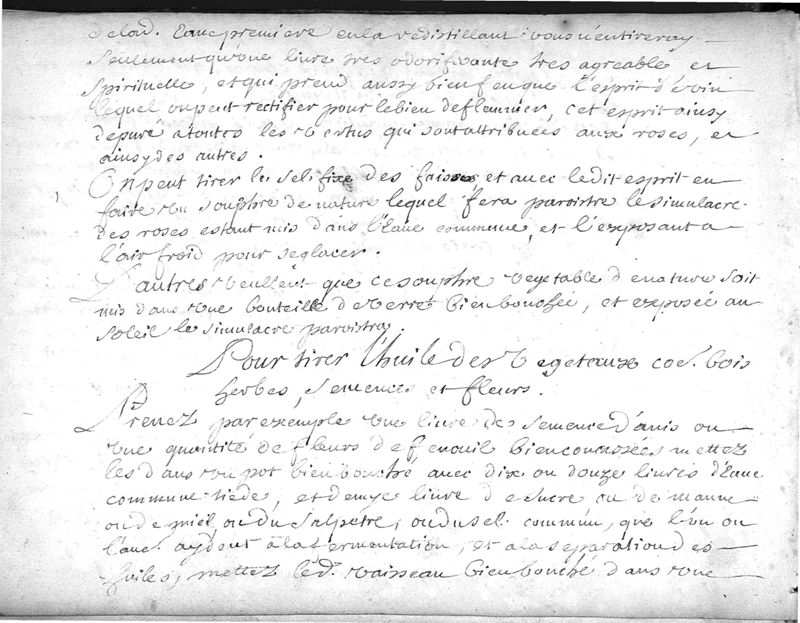 delad. Eaue premiere enla redistillant vous n'entirerez
seullement qu'une livre tres odorifxante tres agreable et
spirituelle, et qui prend aussy bien feu que l'esprit de vin
lequel on peut rectifier pour le bien deflemmer, Cet esprit ainsy
depuré a toutes les vertus qui sont attribuées aux roses, et
ainsy des autres.
On peut tirer le sel fixe des faisces, et avec ledit esprit en
faire un souphre de nature lequel fera paroistre le simulacre
des roses estant mis dans l'Eaue commune, et l'exposant a
l'air froid pour seglacer.
D'autres veullent que ce souphre vegetable de nature soit
mis dans une bouteille de verre bien bouchée, et exposée au
soleil le simulacre paroistra.
Pour tirer l'huile des vegeteaux coe. bois
herbes, semences et fleurs.
Prenez par exemple une livre de semence d'anis ou
une quantité de fleurs de fenouil bien concassées mettez
les dans un pot bien bouché avec dix ou douze livres d'Eaue
commune tiede, et demye livre de sucre ou de manne
ou de miel, ou du salpétre, ou du sel commun, que l'un ou
l'aue. aydent à la fermentation, et a la separation des
huiles, mettez led. vaisseau bien bouché dans une